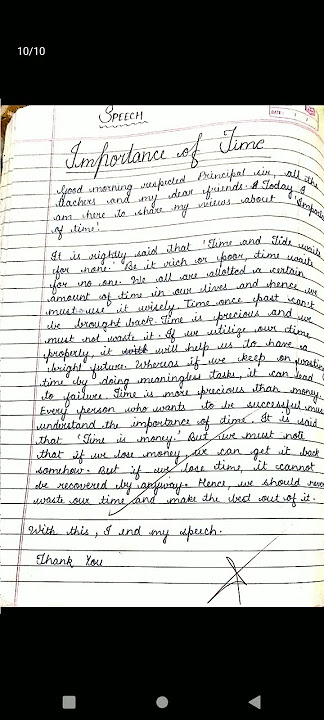 10/10
SPEECH
DATE:
Importance of Time
Good morning respected Principal sir, all the
teachers and my dear friends. Today I
am here to share my views about 'Importa
of time'.
It is rightly said that 'Time and Tide waits
for none.' Be it rich or poor, time waits
for no one. We all are allotted a certain
amount of time in our lives and hence we
must use it wisely. Time once past can't
be brought back. Time is precious and we
must not waste it. If we utilize our time
properly, it will help us to have a
bright future. Whereas if we keep on wasting
time by doing meaningless tasks, it can lead
to failure. Time is more precious than money.
Every person who wants to be successful must
understand the importance of time. It is said
that 'Time is money.' But we must note
that if we lose money, we can get it back
somehow. But if we lose time, it cannot
be recovered by anyway. Hence, we should never
waste our time and make the best out of it.
With this, I end my speech.
Thank You